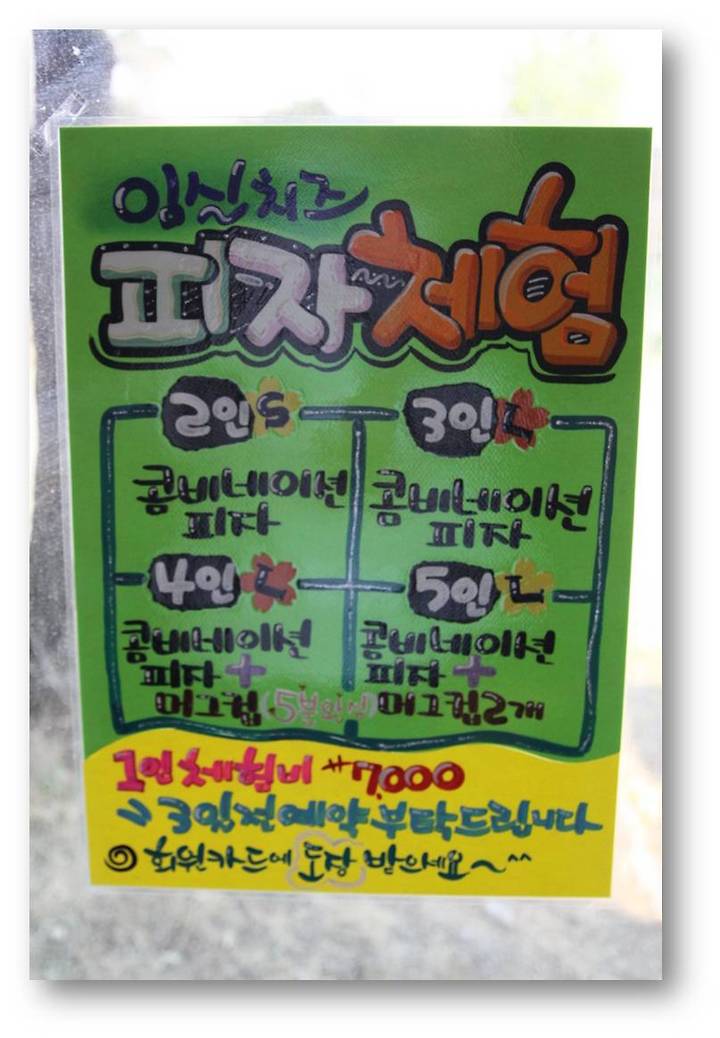 임실치즈
피자체험
2인 S
콤비네이션
피자
3인 L
콤비네이션
피자
4인 L
콤비네이션
피자 +
머그컵 (5분완성)
5인 L
콤비네이션
피자 +
머그컵2개
1인 체험비 ₩7,000
3일전예약부탁드립니다
회원카드에 도장 받으세요~^^